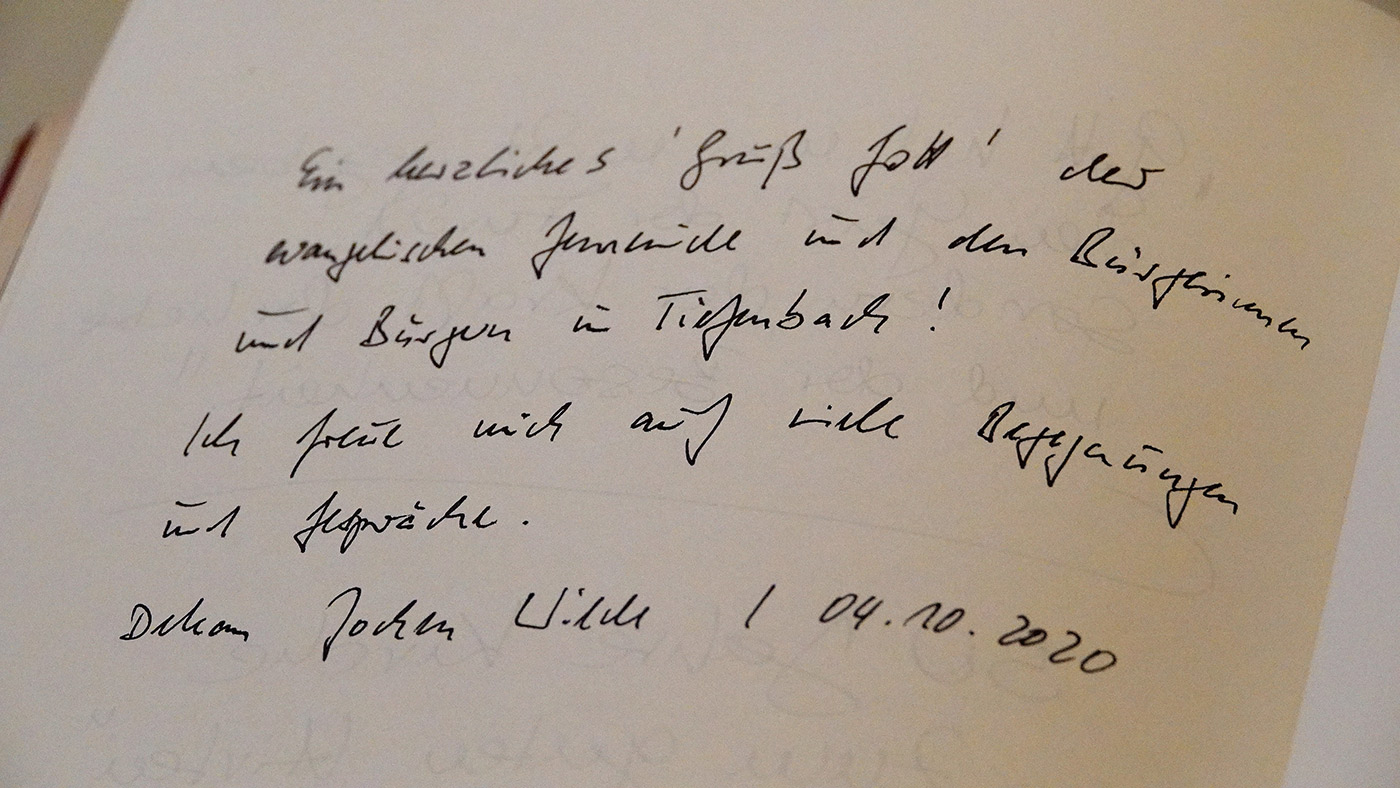 Ein herzliches 'Grüß Gott' der
evangelischen Gemeinde und den Bürgerinnen
und Bürgern in Tiefenbach!
Ich freue mich auf viele Begegnungen
und Gespräche.
Dekan Jochen Wilde / 04.10.2020